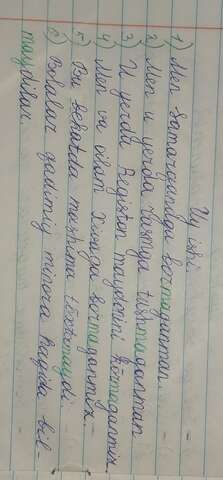 Uy ishi
1) Men Samarqandga bormaganman.
2) Men u yerda rasmga tushmaganman
3) U yerda Registon maydonini ko'rmaganmiz.
4) Men va oilam Xivaga bormaganmiz.
5) Bu bekatda mashina to'xtamaydi.
6) Bolalar qadimiy minora haqida bil-
maydilar.